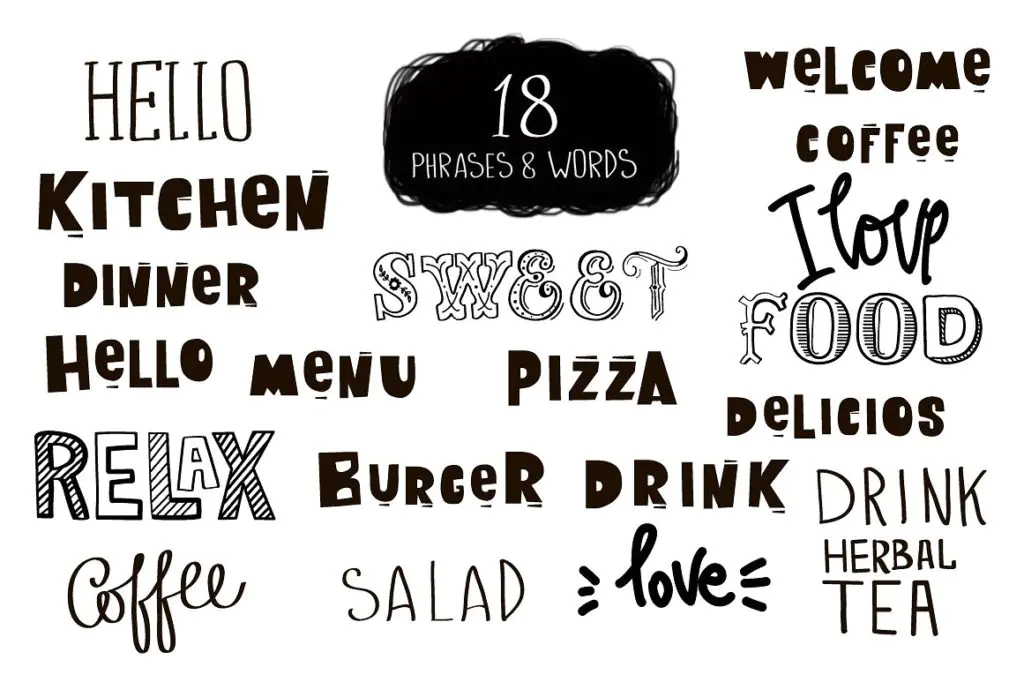 HELLO
18
PHRASES & WORDS
WeLCOME
COFFEE
KiTCHeN
I love
SWEET
DiNNeR
FOOD
HeLLO
MeNU
PIZZA
DeLICIOS
RELAX
BURGER
DRINK
DRINK
HERBAL
TEA
Coffee
SALAD
love